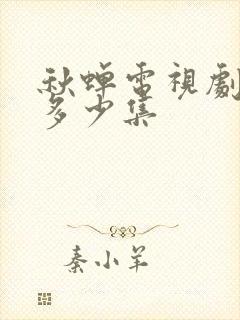 秋蟬電視劇
多少集
秦小羊